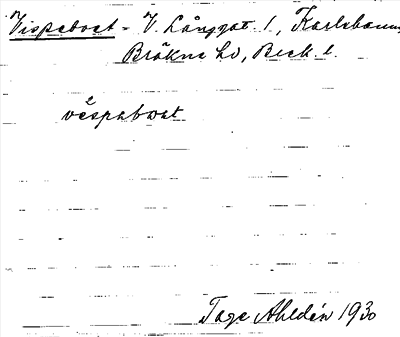 Vispabost = V. Långgat. 1, Karlshamn,
Bräkne hd, Blek. l.
vespabωst
Tage Ahldén 1930